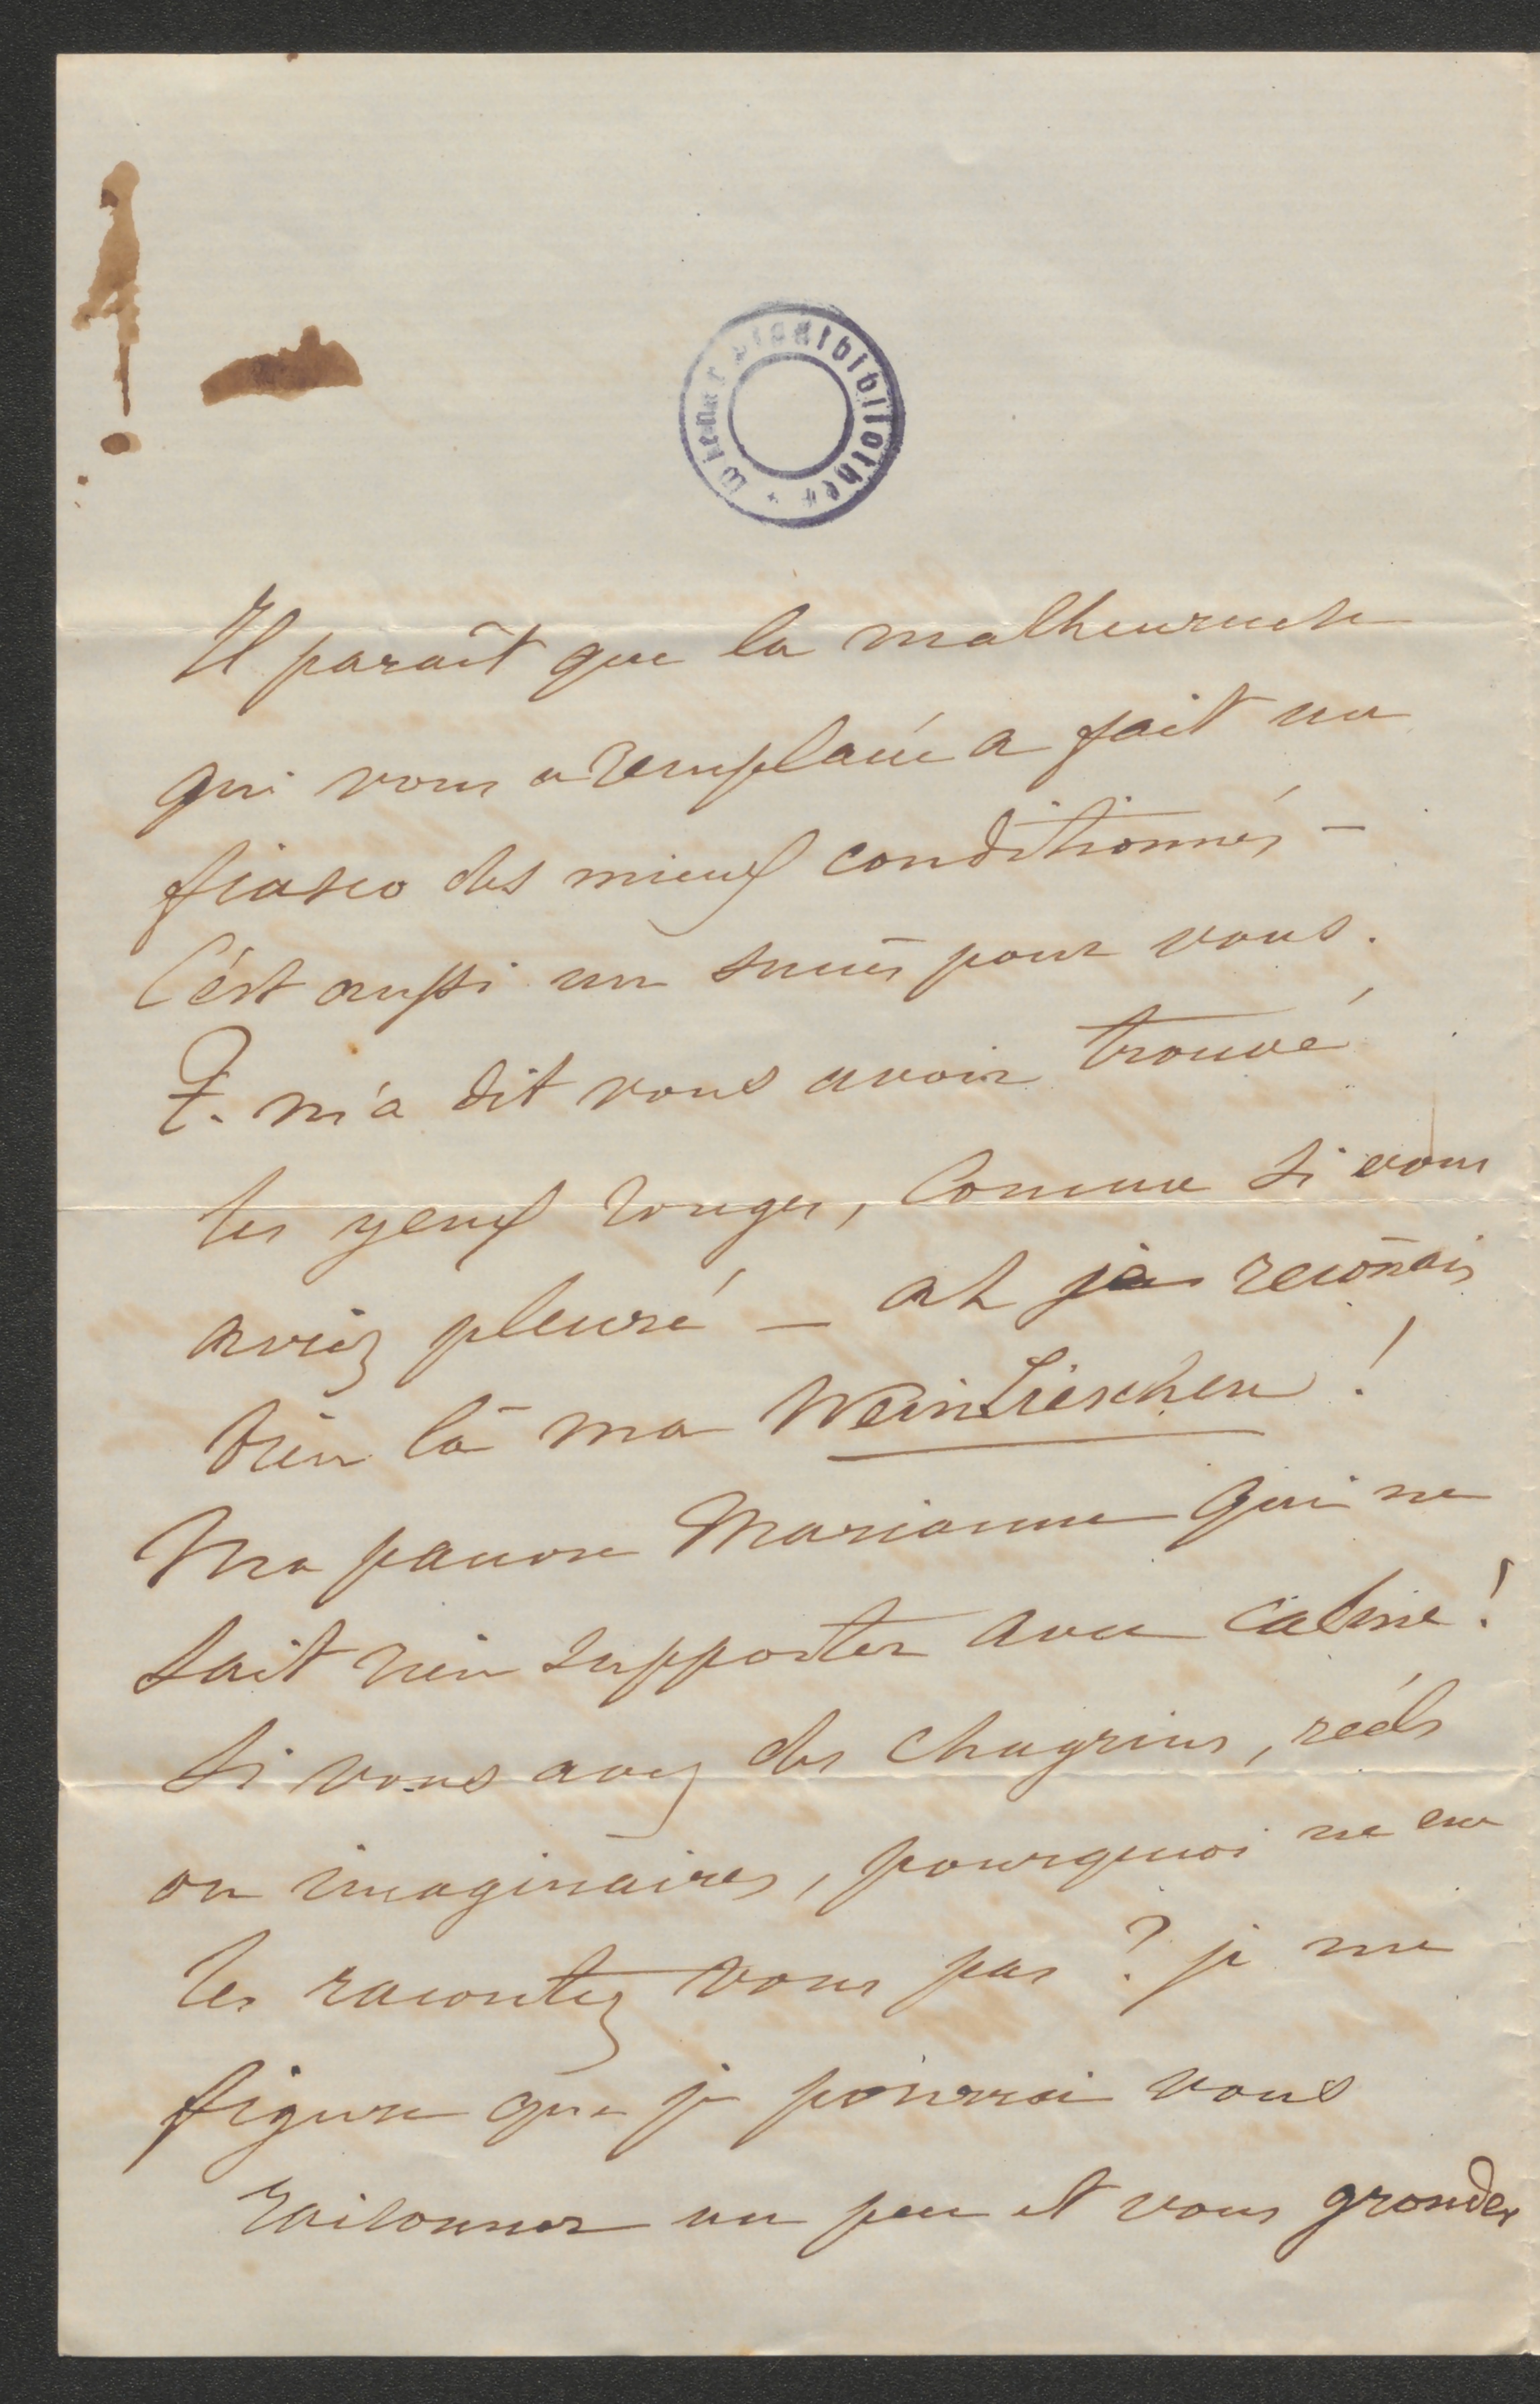 Wiener Stadtbibliothek
Il paraît que la malheureuse
qui vous a remplacée a fait un
fiasco des mieux conditionnés –
C'est aussi un succès pour vous.
F. m'a dit vous avoir trouvé
les yeux rouges, comme si vous
aviez pleuré – ah je recoñais
bien là ma WeinLieschen!
Ma pauvre Marianne qui ne
sait rien supporter avec calme!
Si vous avez des chagrins, réels
ou imaginaires, pourquoi ne
les racontez vous pas? je me
figure que je pourrai vous
raisonner un peu et vous gronder